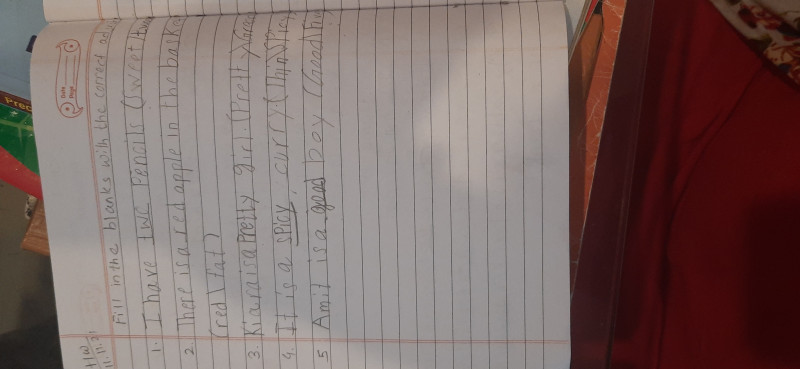 H/W
11.11.21
Date
Page
Fill in the blanks with the correct
1. I have two Pencils (sweet
2. There is a red apple in the basket
(red \ fat)
3. Kiara is a Pretty girl. (Pretty
4. It is a spicy curry (thin
5 Amit is a good boy (Good
Prec